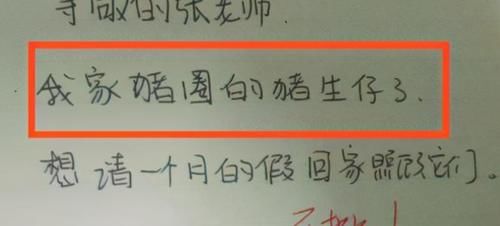 尊敬的张老师.
我家猪圈的猪生仔了.
想请一个月的假回家照顾它们。